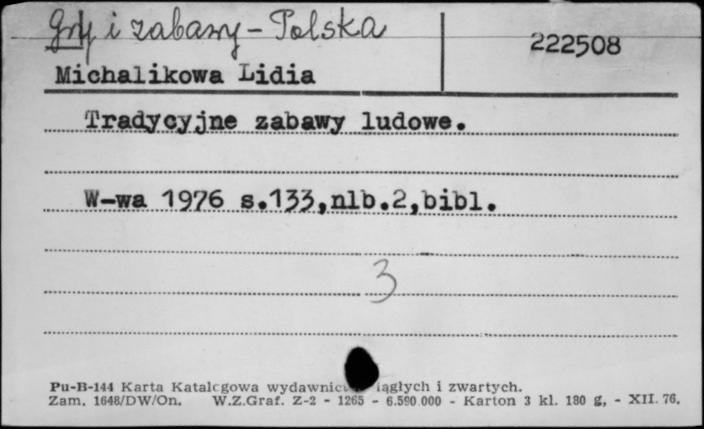 Gry i zabawy - Polska
222508
Michalikowa Lidia
Tradycyjne zabawy ludowe.
W-wa 1976 s.133,nlb.2,bibl.
3
Pu-B-144 Karta Katalogowa wydawnictw ciągłych i zwartych.
Zam. 1648/DW/On. W.Z.Graf. Z-2 - 1265 - 6.590.000 - Karton 3 kl. 180 g, - XII. 76.